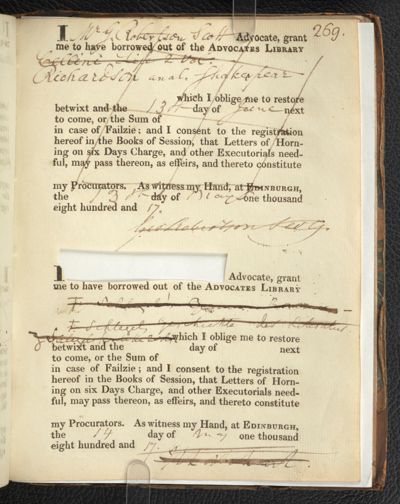 269.
I Mr J. Robertson Scott Advocate, grant
me to have borrowed out of the ADVOCATES LIBRARY
Cellini Life 2 vol.
Richardson anal. Shakespeare
which I oblige me to restore
betwixt and the 13th day of June next
to come, or the Sum of
in case of Failzie; and I consent to the registration
hereof in the Books of Session, that Letters of Horn-
ing on six Days Charge, and other Executorials need-
ful, may pass thereon, as effeirs, and thereto constitute
my Procurators. As witness my Hand, at EDINBURGH,
the 13th day of May one thousand
eight hundred and 17.
Robertson Scott
I Advocate, grant
me to have borrowed out of the ADVOCATES LIBRARY
Schlegel, Geschichte der
which I oblige me to restore
betwixt and the day of next
to come, or the Sum of
in case of Failzie; and I consent to the registration
hereof in the Books of Session, that Letters of Horn-
ing on six Days Charge, and other Executorials need-
ful, may pass thereon, as effeirs, and thereto constitute
my Procurators. As witness my Hand, at EDINBURGH,
the 14 day of May one thousand
eight hundred and 17.